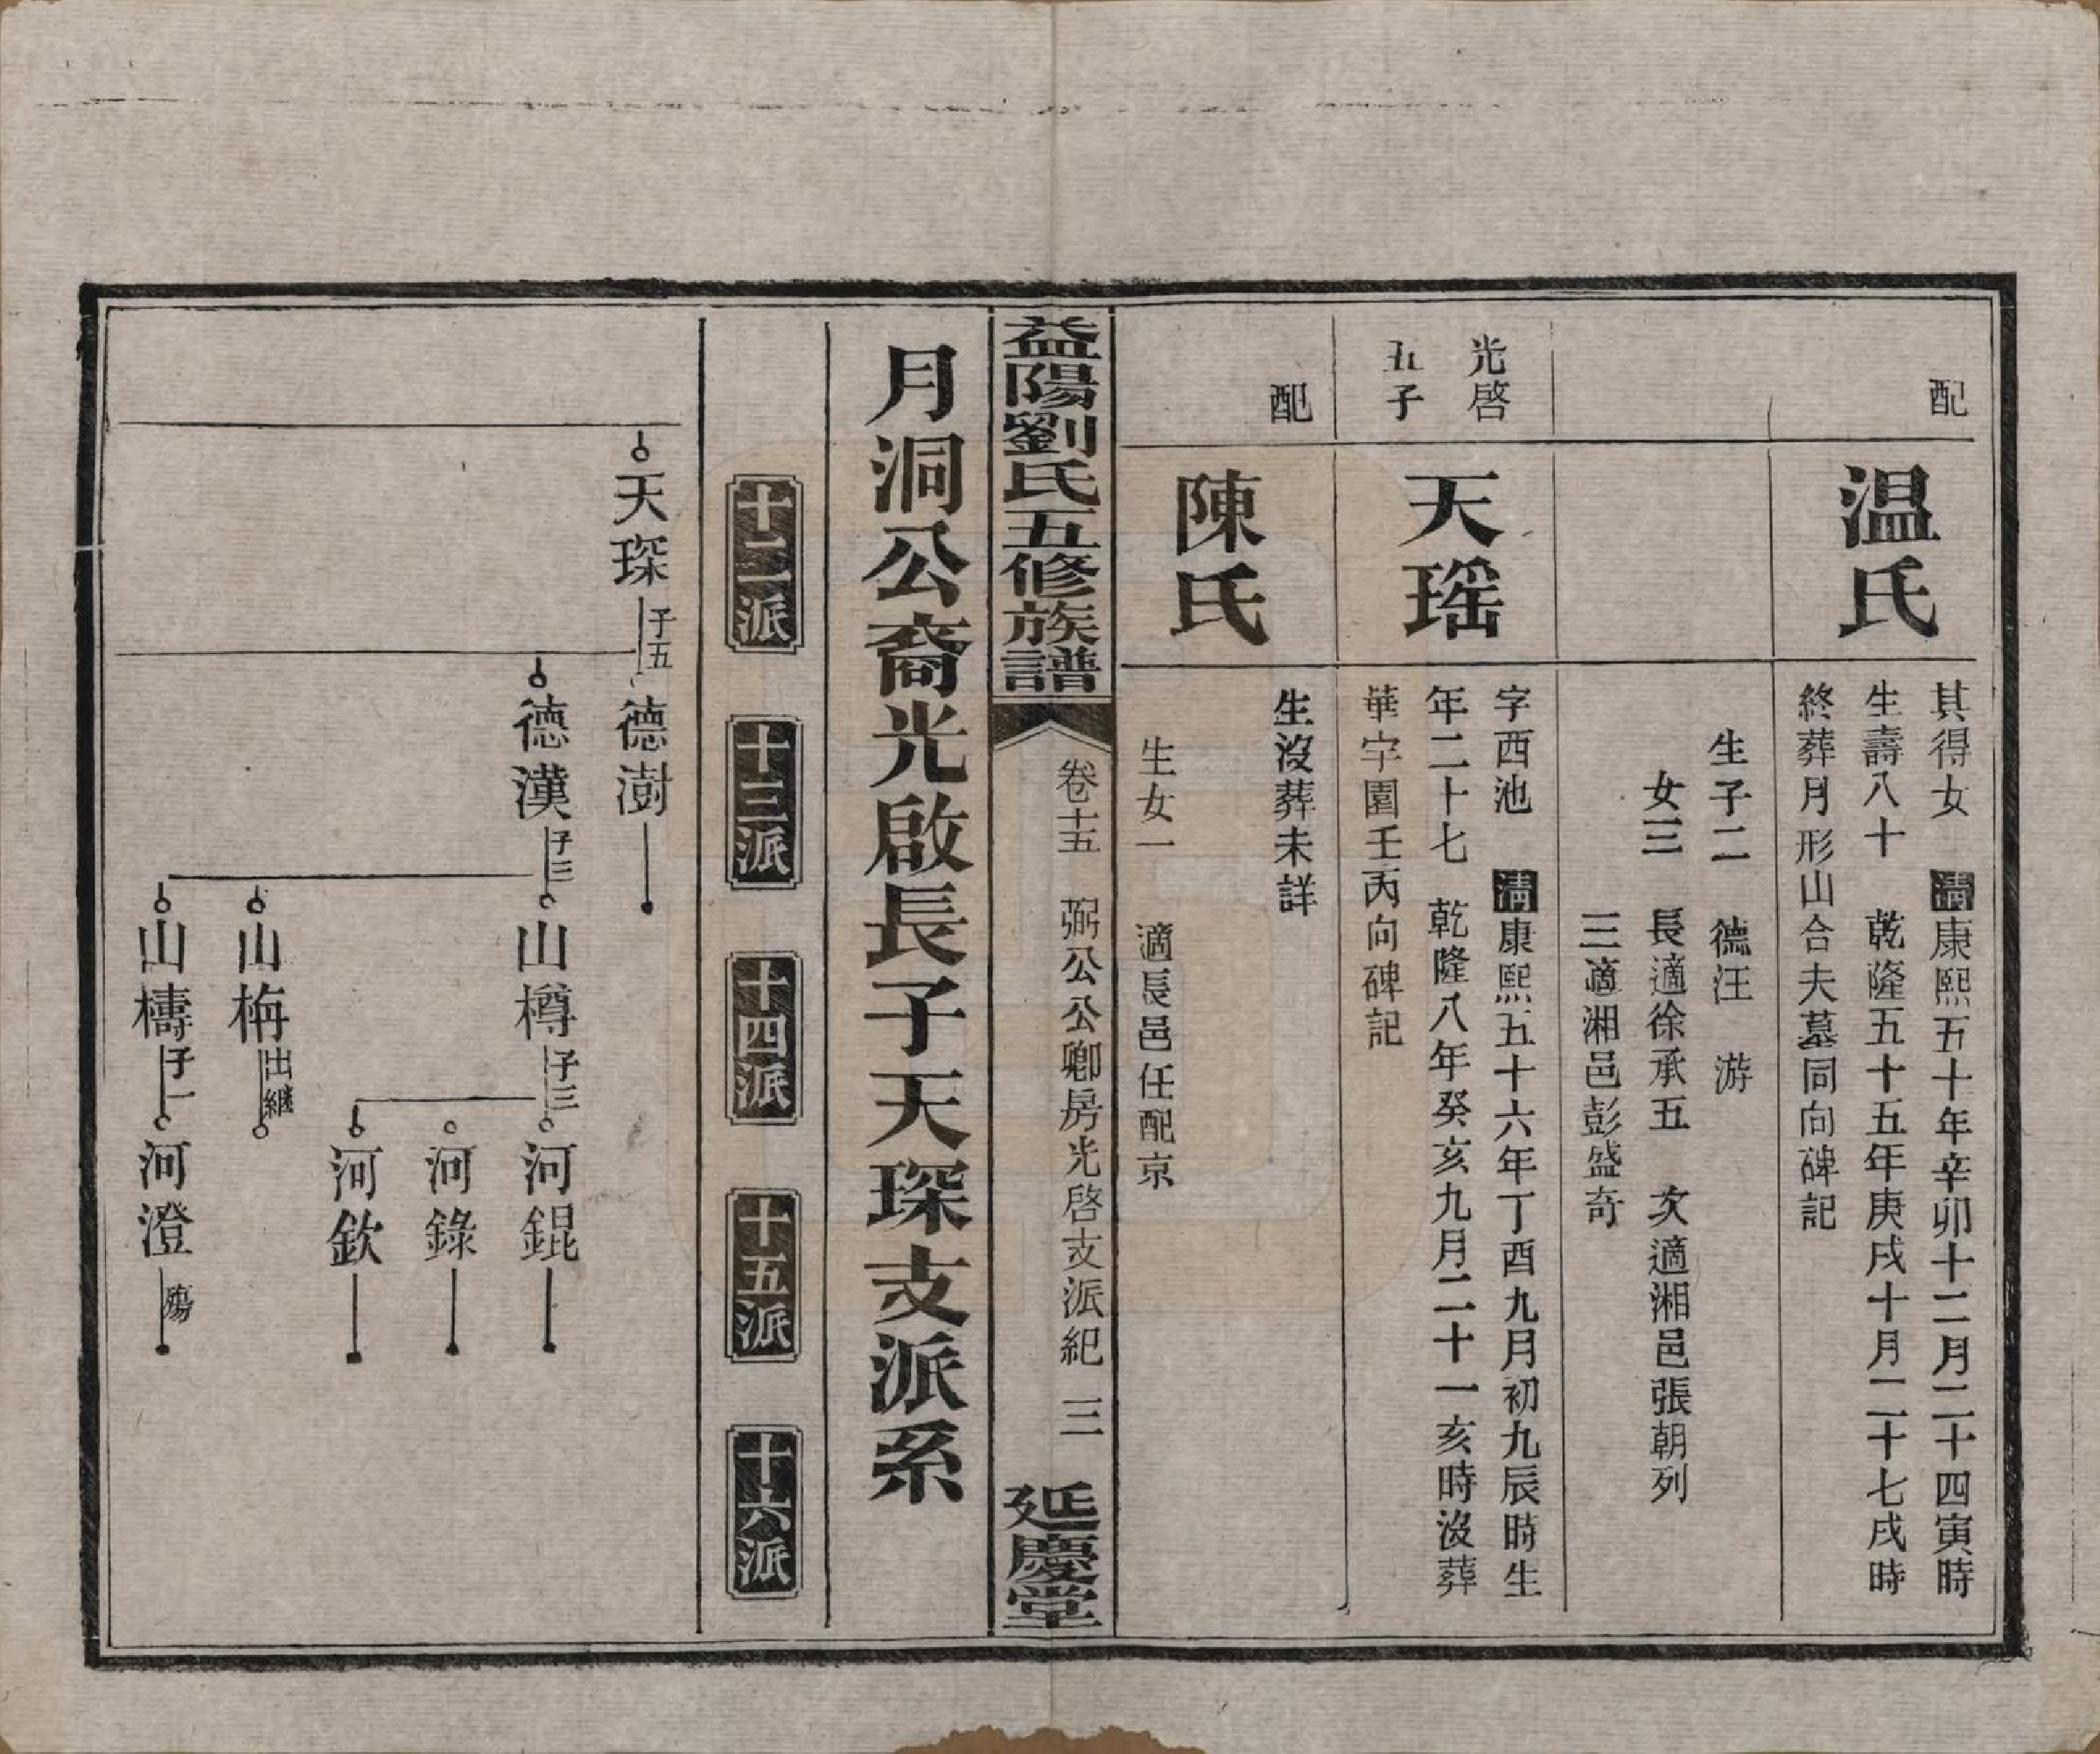 配
温氏
其得女 清康熙五十年辛卯十二月二十四寅時
生壽八十 乾隆五十五年庚戌十月二十七戌時
終葬月形山合夫墓同向碑記
生子二 德汪 游
女三 長適徐承五 次適湘邑張朝列
三適湘邑彭盛奇
光啓
五子
天瑶
字西池 清康熙五十六年丁酉九月初九辰時生
年二十七 乾隆八年癸亥九月二十一亥時沒葬
華字園壬丙向碑記
配
陳氏
生沒葬未詳
生女一 適長邑任配京
益陽劉氏五修族譜
卷十五 弼公公卿房光啓支派紀 三
延慶堂
月洞公裔光啟長子天琛支派系
十二派 十三派 十四派 十五派 十六派
天琛 子五 德澍
德漢 子三 山樽 子三 河錕
河錄
河欽
山栴 出繼
山檮 子一 河澄 殤